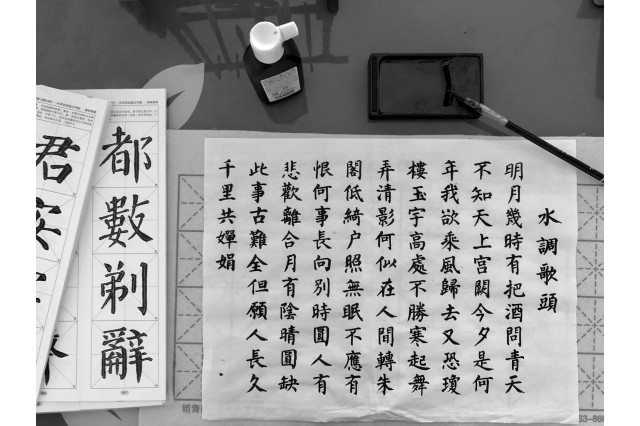 水調歌頭
明月幾時有把酒問青天
不知天上宮闕今夕是何
年我欲乘風歸去又恐瓊
樓玉宇高處不勝寒起舞
弄清影何似在人間轉朱
閣低綺户照無眠不應有
恨何事長向別時圓人有
悲歡離合月有陰晴圓缺
此事古難全但願人長久
千里共嬋娟
都數剃辭
君安